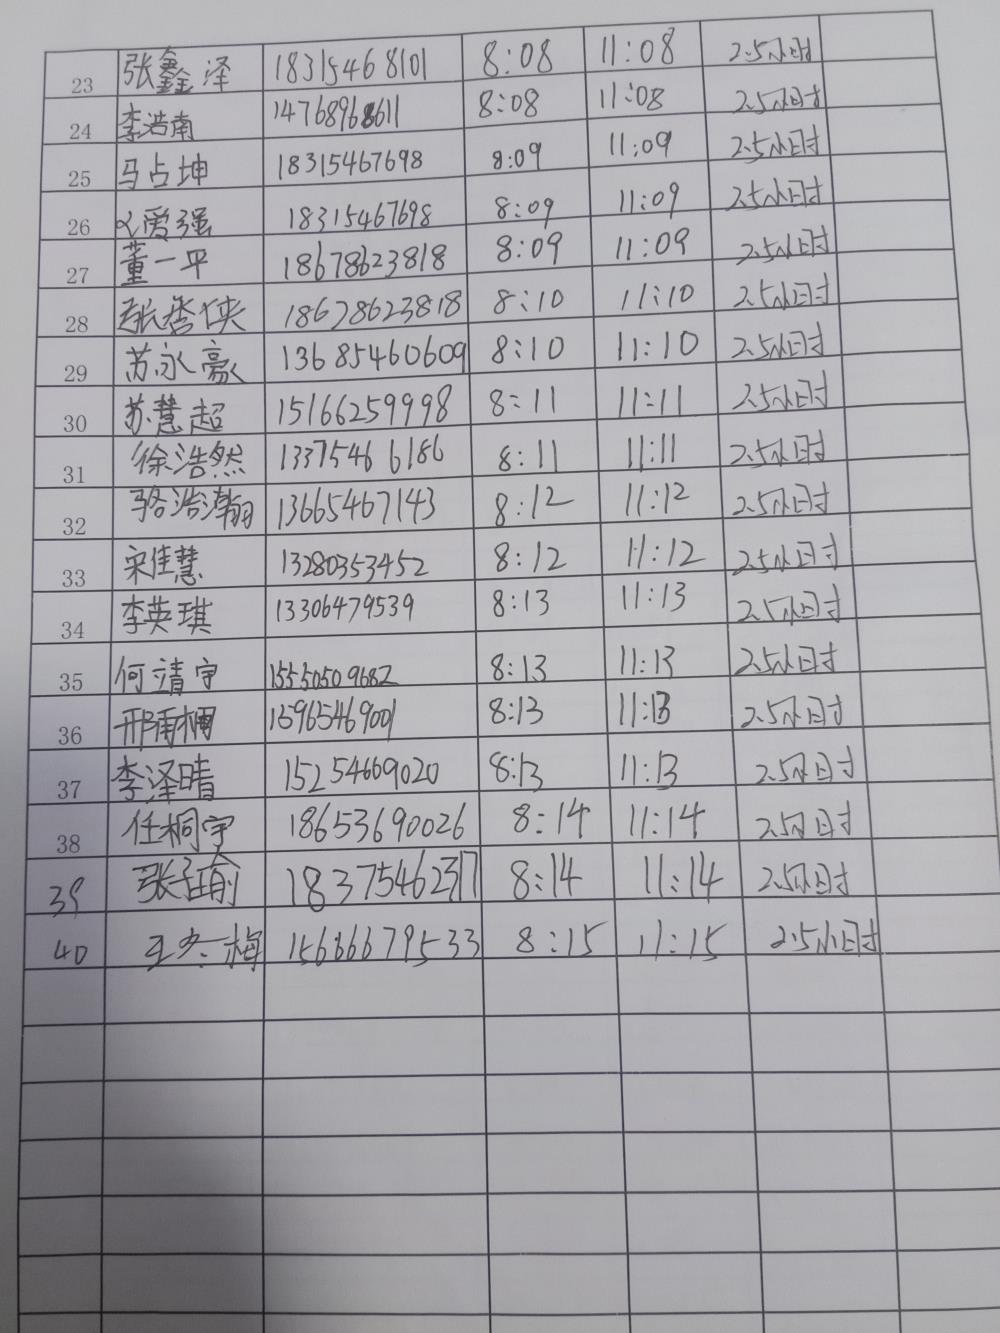 23 张鑫泽 18315468101 8:08 11:08 2.5小时
24 李浩南 14768968611 8:08 11:08 2.5小时
25 马占坤 18315467698 8:09 11:09 2.5小时
26 爱强 18315467698 8:09 11:09 2.5小时
27 董一平 18678623818 8:09 11:09 2.5小时
28 张秀侠 18678623818 8:10 11:10 2.5小时
29 苏永豪 13685460609 8:10 11:10 2.5小时
30 苏慧超 15166259998 8:11 11:11 2.5小时
31 徐浩然 13375466186 8:11 11:11 2.5小时
32 骆浩瀚 13665467143 8:12 11:12 2.5小时
33 宋佳慧 13280353452 8:12 11:12 2.5小时
34 李英琪 13306479539 8:13 11:13 2.5小时
35 何靖宇 15550509682 8:13 11:13 2.5小时
36 邢雨桐 13965469001 8:13 11:13 2.5小时
37 李泽晴 15254669020 8:13 11:13 2.5小时
38 任桐宇 18653690026 8:14 11:14 2.5小时
39 张钰瑜 18375462317 8:14 11:14 2.5小时
40 王冬梅 15666679533 8:15 11:15 2.5小时